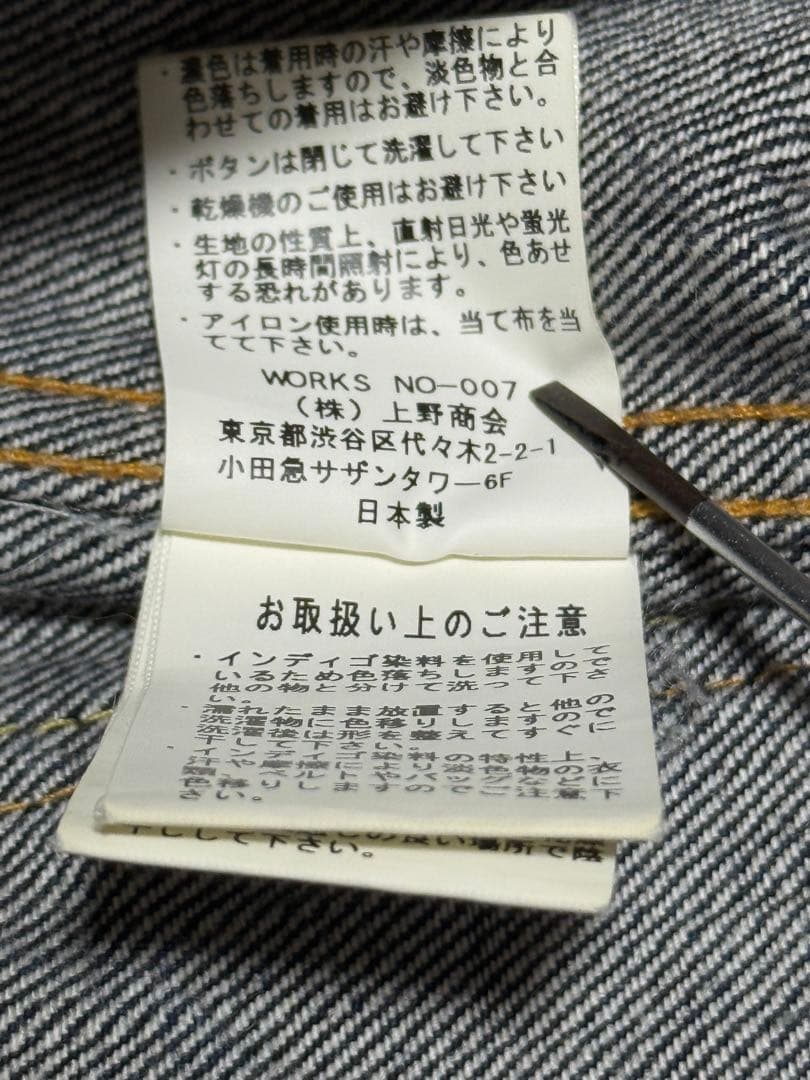 ・濃色は着用時の汗や摩擦により
色落ちしますので、淡色物と合
わせての着用はお避け下さい。
・ボタンは閉じて洗濯して下さい
・乾燥機のご使用はお避け下さい
・生地の性質上、直射日光や蛍光
灯の長時間照射により、色あせ
する恐れがあります。
・アイロン使用時は、当て布を当
てて下さい。
WORKS NO-007
(株)上野商会
東京都渋谷区代々木2-2-1
小田急サザンタワー6F
日本製
お取扱い上のご注意
・インディゴ染料を使用して
いるため色落ちしますので
他の物と分けて洗って下さ
い。
・濡れたまま放置すると他の
洗濯物に色移りしますので
洗濯後は形を整えてすぐに
干して下さい。
・インディゴ染料の特性上、
汗や摩擦により淡色物の衣
類、ベルトやバッグなどに
色移りしますのでご注意下
さい。
の良い場所で陰
干しして下さい。